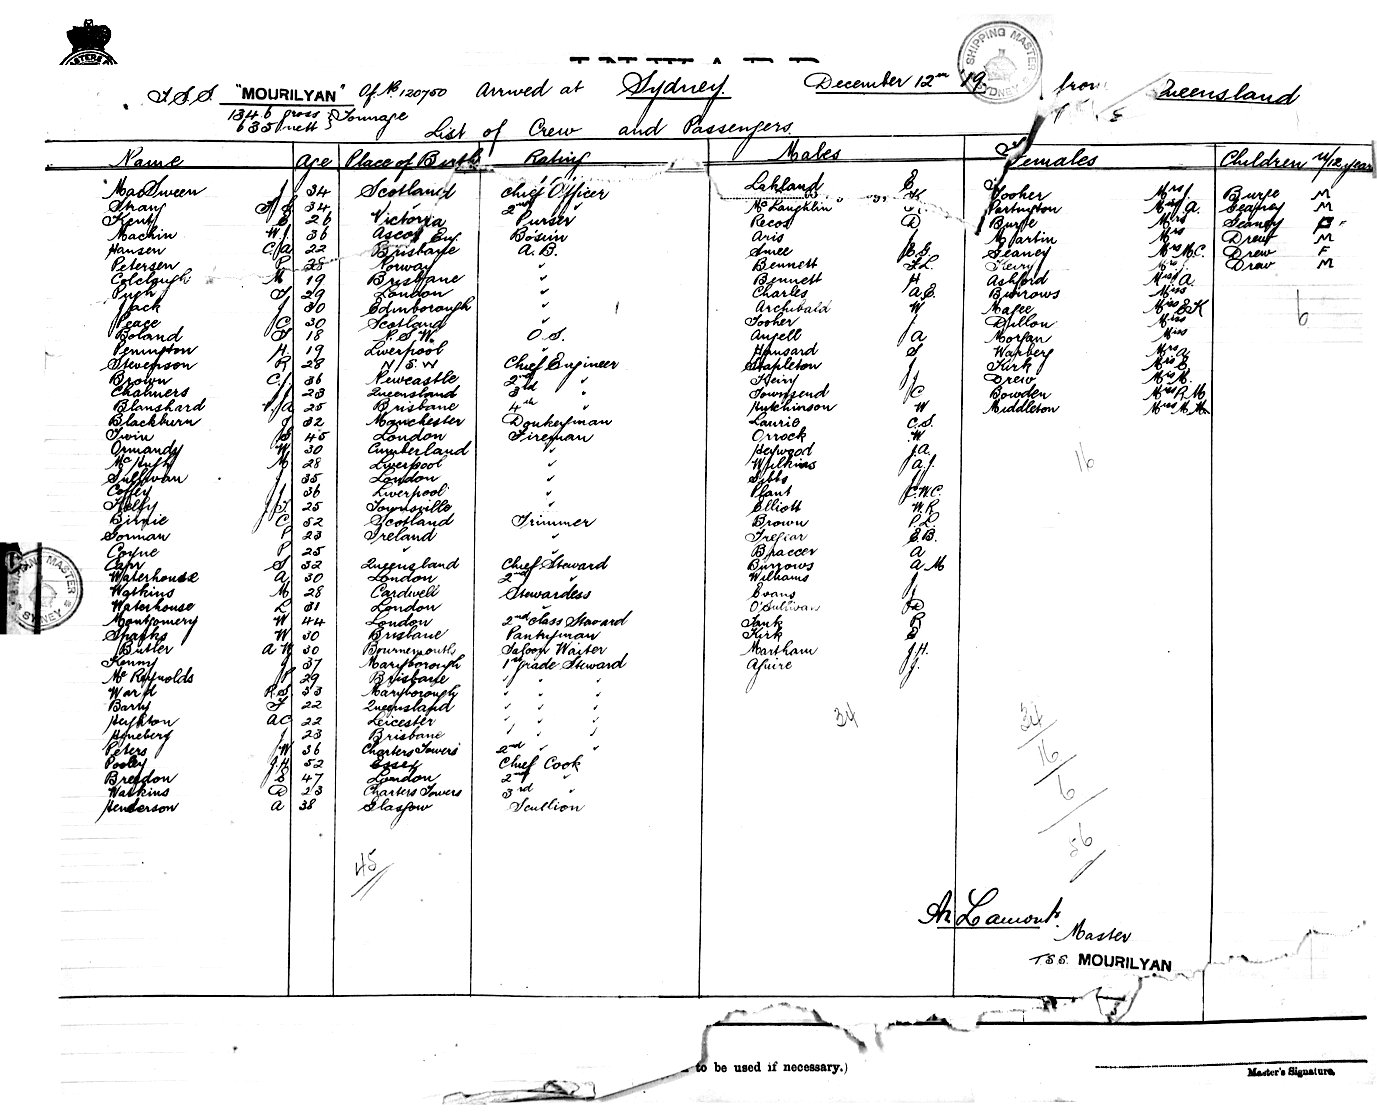 SHIPPING MASTER SYDNEY
T.S.S. "MOURILYAN" Of No 120700 Arrived at Sydney December 12th 19 from Queensland
1346 gross
635 nett } Tonnage
List of Crew and Passengers
Name Age Place of Birth Rating Males Females Children u/12 years
MacSween J 34 Scotland Chief Officer Lakland E Tooher Mrs Burge M
34 2nd " McLaughlin Pertington Miss A. Seaney M
Kent E 26 Victoria Purser Recos D Burge Mrs Seaney F
Mackin W J 36 Ascot Eng. Bosun Aris J Martin Mrs Drew M
Hansen C A 22 Brisbane A.B. Smee E G Seaney Mrs M.C. Drew F
Petersen P 28 Norway " Bennett F.L. Henry Mrs Drew M
Colclough M 19 Brisbane " Bennett H Ashford Miss A.
Pugh T 29 London " Charles A.E. Burrows Miss
Jack J 30 Edinborough " Archibald W Magee Miss E K 6
Peace C 30 Scotland " Tooher J Dillon Miss
Boland T 18 N.S.W. O.S. Angell A Morgan Miss
Penington H 19 Liverpool " Hansard S Warberg Mrs A
Stevenson R 28 N S W Chief Engineer Stapleton J Kirk Mrs E.
Brown C.J 36 Newcastle 2nd " Henry J Drew Mrs M.
Chalmers J 23 Queensland 3rd " Townsend C Bowden Miss R M
Blanshard A 25 Brisbane 4th " Hutchinson W Middleton Miss M M
Blackburn J 32 Manchester Donkeyman Laurie C.S.
Irwin S 45 London Fireman Orrock W
Ormandy W 30 Cumberland " Heywood J.A. 16
McHugh M 28 Liverpool " Wilkins A.J.
Sullivan J 35 London " Gibbs J
Coffey J 36 Liverpool " Plant C.W.C.
Kelly J.T 25 Townsville " Elliott W.R
Binnie C 52 Scotland Trimmer Brown P.L
Gorman P 23 Ireland " Tregear E.B.
Coyne P 25 " " Braccer A
Carr S 32 Queensland Chief Steward Burrows A M
Waterhouse A 30 London 2nd " Williams J
Watkins M 28 Cardwell Stewardess Evans J
Waterhouse L 31 London " O'Sullivan D
Montgomery W 44 London 2nd Class Steward Tank R
Sparks W 30 Brisbane Pantryman Kirk E
Butler A W 30 Bournemouth Saloon Waiter Martham J.H.
Kenny J 37 Maryborough 1st grade Steward Aguire J.
McReynolds P 29 Brisbane " " "
Ward R S 33 Maryborough " " "
Barry T 22 Queensland " " "
Heighton A C 22 Leicester " " "
Hyneberg J 23 Brisbane " " "
Peters W 36 Charters Towers 2nd " "
Pooley J.H 52 Essex Chief Cook
Breedon E 47 London 2nd "
Watkins D 23 Charters Towers 3rd "
Henderson A 38 Glasgow Scullion
34
34
16
6
56
45
SHIPPING MASTER SYDNEY
An Lamont
Master
TSS. MOURILYAN
to be used if necessary.)
Master's Signature.